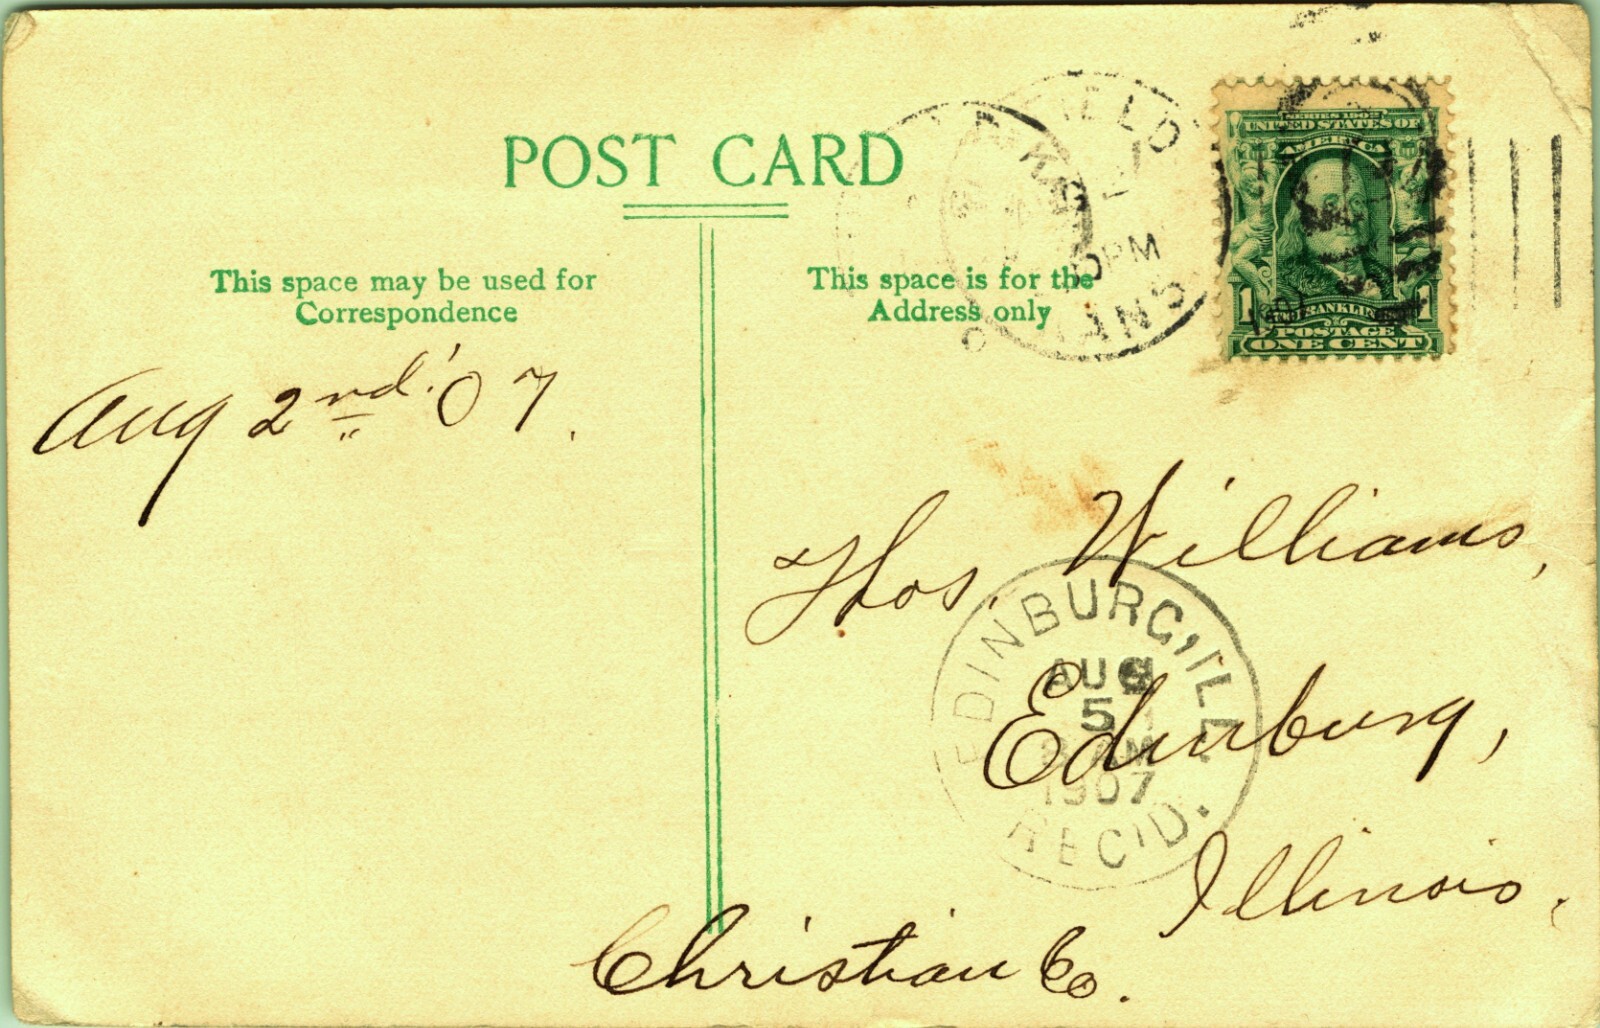 POST CARD
This space may be used for
Correspondence
This space is for the
Address only
SERIES 1902
UNITED STATES OF
AMERICA
1 1
FRANKLIN
POSTAGE
ONE CENT
PM
Aug 2nd '07.
Thos. Williams,
Edinburg,
Illinois.
Christian Co.
EDINBURG, ILL.
AUG
5
AM
1907
REC'D.